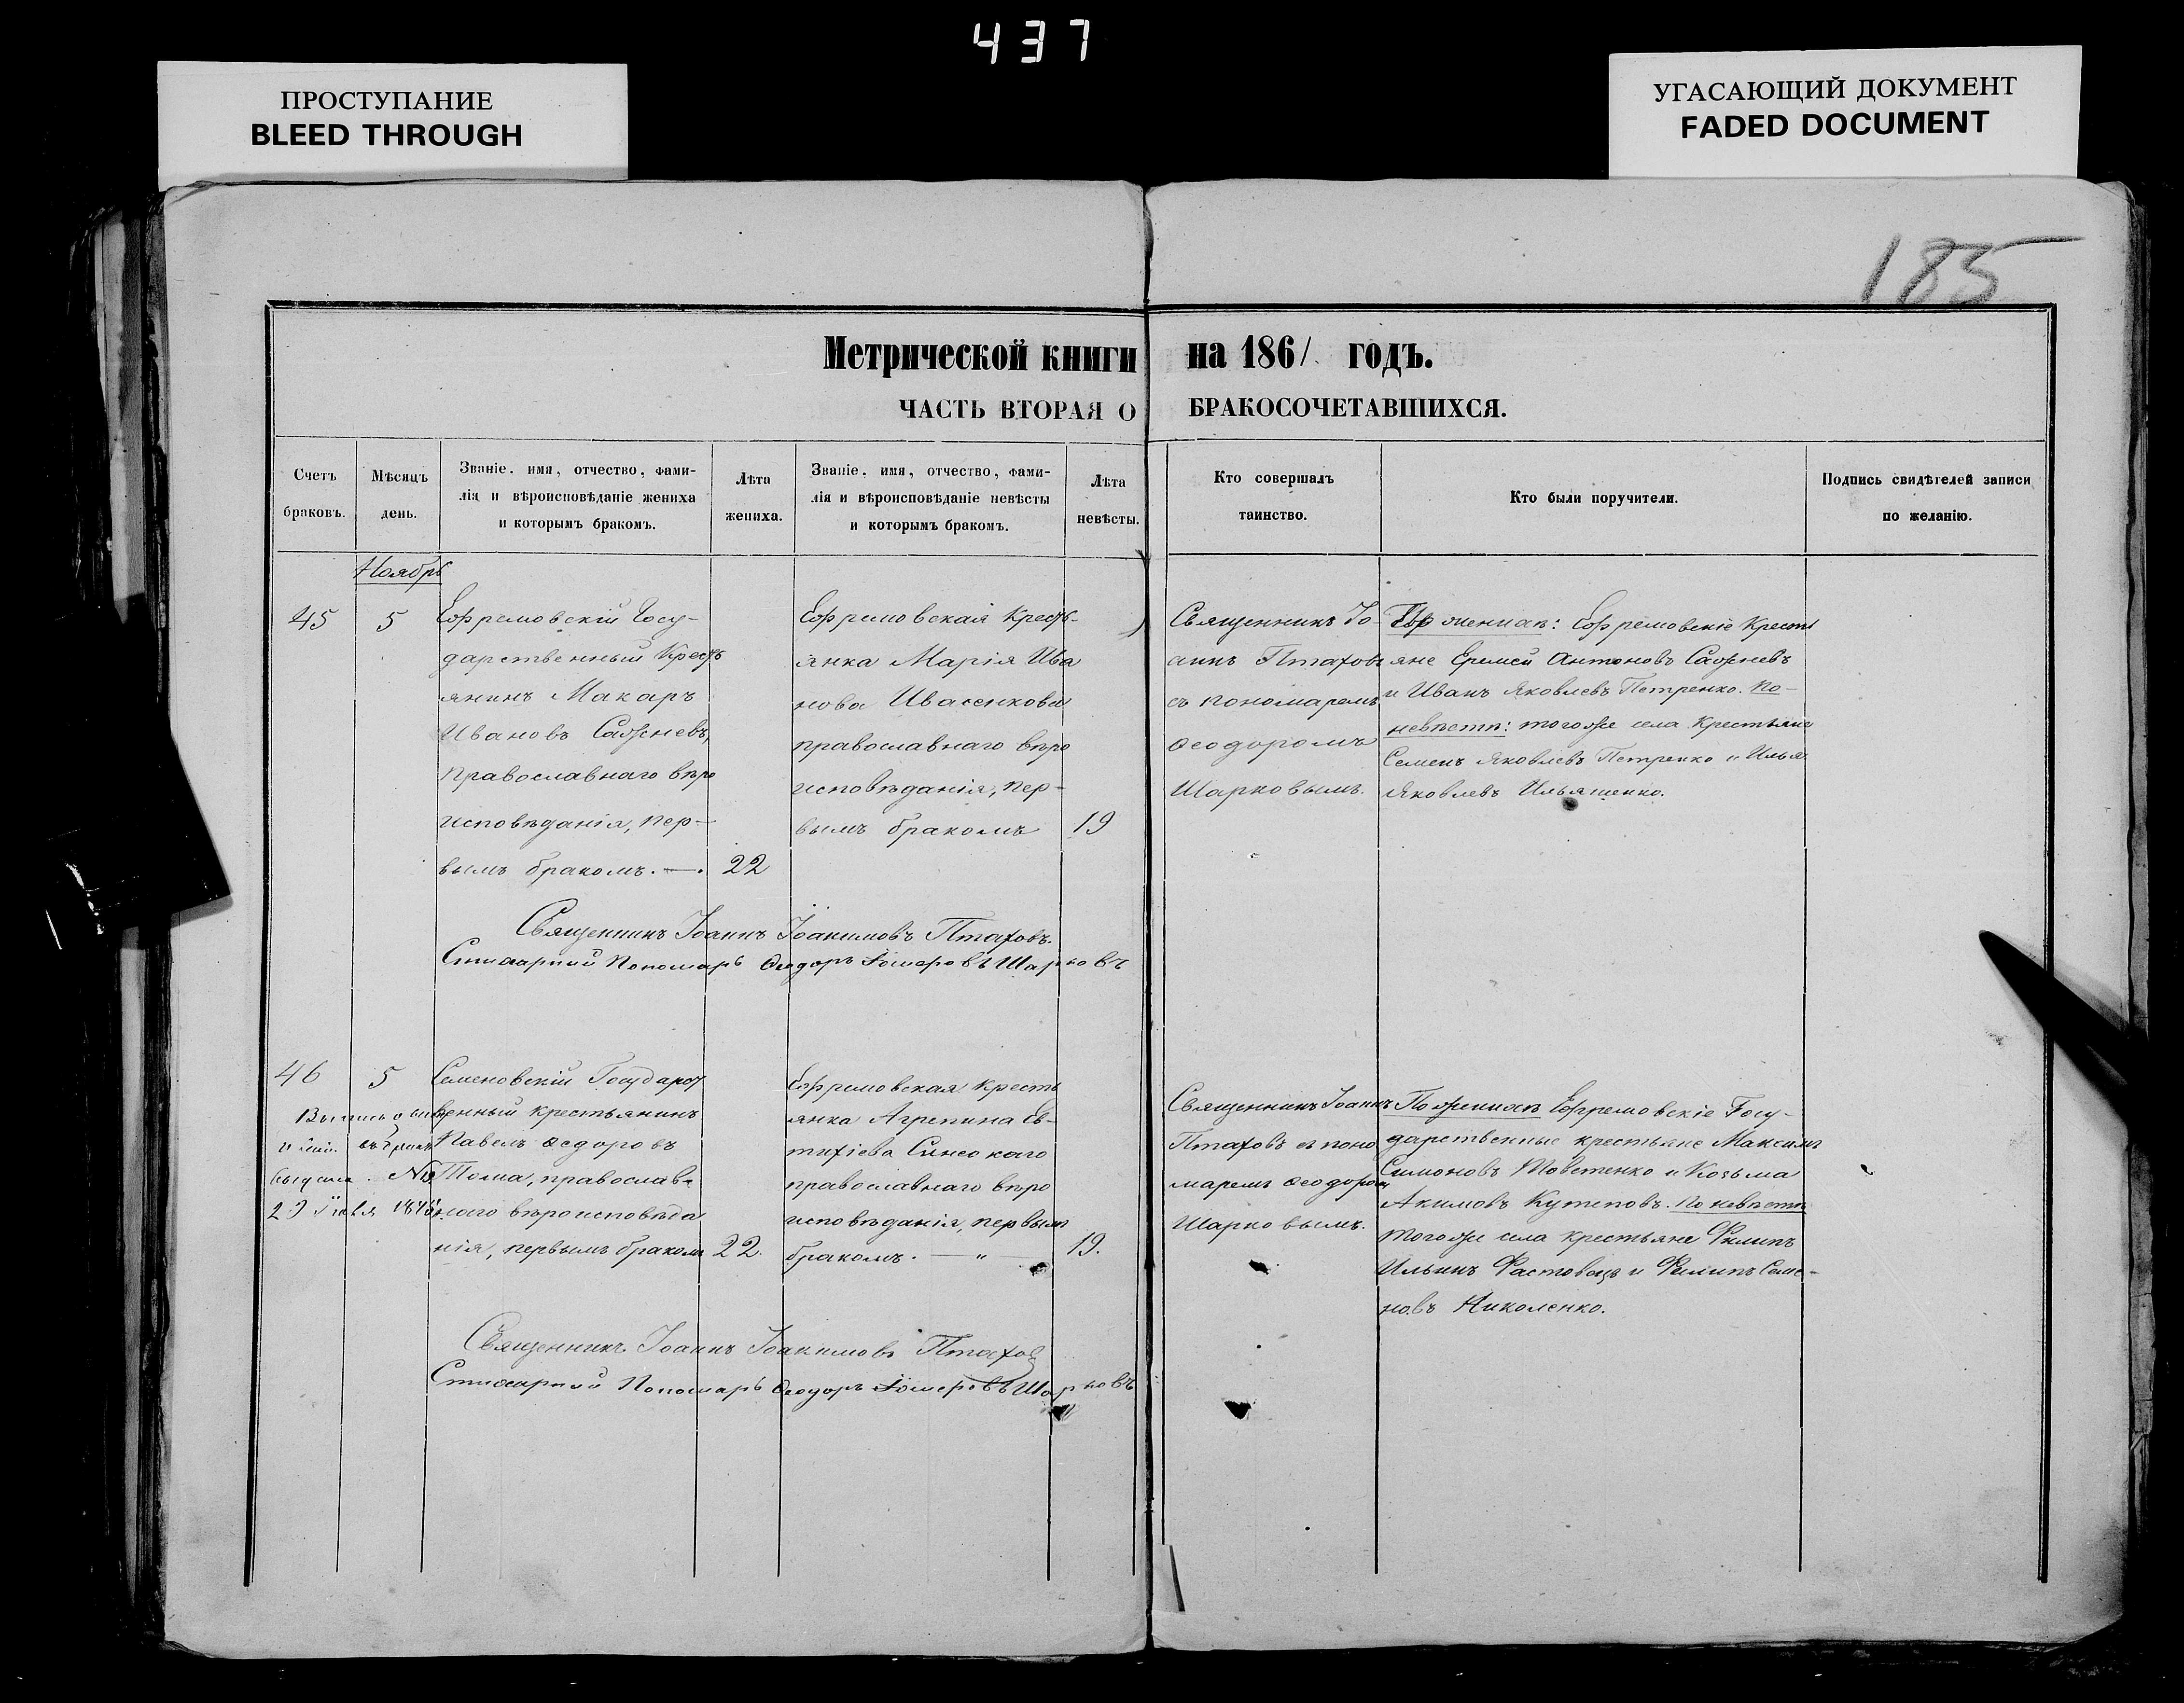 437
ПРОСТУПАНИЕ
BLEED THROUGH
УГАСАЮЩИЙ ДОКУМЕНТ
FADED DOCUMENT
185
Метрической книги на 1861 годъ.
ЧАСТЬ ВТОРАЯ О БРАКОСОЧЕТАВШИХСЯ.
Счетъ
браковъ.
Мѣсяцъ
день.
Званіе, имя, отчество, фами-
лія и вѣроисповѣданіе жениха
и которымъ бракомъ.
Лѣта
жениха.
Званіе, имя, отчество, фами-
лія и вѣроисповѣданіе невѣсты
и которымъ бракомъ.
Лѣта
невѣсты.
Кто совершалъ
таинство.
Кто были поручители.
Подпись свидѣтелей записи
по желанію.
Ноябрь
45
5
Ефремовскій Госу-
дарственный Кресть
янинъ Макаръ
Ивановъ Сажневъ,
православнаго вѣро
исповѣданія, пер-
вымъ бракомъ.
22
Ефремовская Кресть-
янка Марія Ива
нова Ивасенкова
православнаго вѣро
исповѣданія, пер-
вымъ бракомъ
19
Священникъ Іо-
аннъ Птаховъ
съ пономаремъ
Ѳеодоромъ
Шарковымъ.
По женихѣ: Ефремовскіе Кресть
яне Еремей Антоновъ Сажневъ
и Иванъ Яковлевъ Петренко. По-
невѣстѣ: тогоже села Крестьяне
Семенъ Яковлевъ Петренко и Илья
Яковлевъ Ильяшенко.
Священникъ Іоаннъ Іоакимовъ Птаховъ.
Стихарный Пономарь Ѳеодоръ Шарковъ
46
5
Выпись о
выдана. №
29 1878
Семеновскій Государст
венный крестьянинъ
Павелъ Ѳедоровъ
Тома, православ-
наго вѣроисповѣда
нія, первымъ бракомъ
22.
Ефремовская кресть
янка Агрепина Ев-
тихіева
православнаго вѣро
исповѣданія, первымъ
бракомъ. — „ —
19.
Священникъ Іоаннъ
Птаховъ съ поно
маремъ Ѳеодоромъ
Шарковымъ.
По женихѣ Ефремовскіе Госу-
дарственные крестьяне Максимъ
Симоновъ Товстенко и Козьма
Акимовъ Кутеповъ. По невѣстѣ
тогоже села крестьяне Филипъ
Ильинъ Фастовецъ и Филипъ Семе-
новъ Николенко.
Священникъ Іоаннъ Іоакимовъ Птаховъ
Стихарный Пономарь Ѳеодоръ Шарковъ